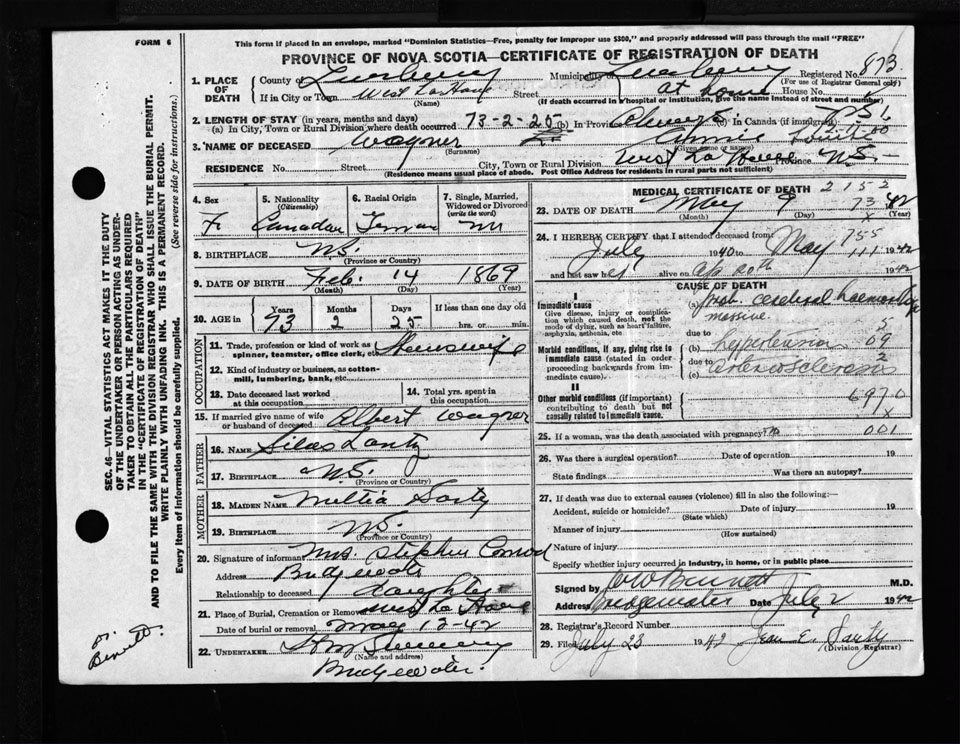 FORM 6
This form if placed in an envelope, marked "Dominion Statistics—Free, penalty for improper use $300," and properly addressed will pass through the mail "FREE"
PROVINCE OF NOVA SCOTIA—CERTIFICATE OF REGISTRATION OF DEATH
1. PLACE OF DEATH County of Lunenburg Municipality of Lunenburg Registered No. 873
(For use of Registrar General only)
If in City or Town West LaHave Street at home House No.
(Name) (If death occurred in a hospital or institution, give the name instead of street and number)
2. LENGTH OF STAY (in years, months and days)
(a) In City, Town or Rural Division where death occurred 73-2-25 (b) In Province Always (c) In Canada (if immigrant)
3. NAME OF DECEASED Wagner Annie
(Surname) (Given name or names)
RESIDENCE No. Street City, Town or Rural Division West La Have Province N.S.
(Residence means usual place of abode. Post Office Address for residents in rural parts not sufficient)
4. Sex F
5. Nationality (Citizenship) Canadian
6. Racial Origin German
7. Single, Married, Widowed or Divorced (write the word) M
8. BIRTHPLACE N.S.
(Province or Country)
9. DATE OF BIRTH Feb. 14 1869
(Month) (Day) (Year)
10. AGE in Years Months Days If less than one day old
73 2 25 hrs. or min.
OCCUPATION
11. Trade, profession or kind of work as spinner, teamster, office clerk, etc. Housewife
12. Kind of industry or business, as cotton-mill, lumbering, bank, etc.
13. Date deceased last worked at this occupation
14. Total yrs. spent in this occupation
15. If married give name of wife or husband of deceased Elbert Wagner
FATHER
16. NAME Silas Lantz
17. BIRTHPLACE N.S.
(Province or Country)
MOTHER
18. MAIDEN NAME Sarty
19. BIRTHPLACE N.S.
(Province or Country)
20. Signature of informant Mrs. Stephen Conrod
Address Bridgewater
Relationship to deceased daughter
21. Place of Burial, Cremation or Removal West La Have
Date of burial or removal May 12-42
22. UNDERTAKER
(Name and address)
Bridgewater.
MEDICAL CERTIFICATE OF DEATH 2152
23. DATE OF DEATH May 9 73 42
(Month) (Day) (Year)
24. I HEREBY CERTIFY that I attended deceased from 755
July 1940 to May 111 1942
and last saw her alive on 1942
CAUSE OF DEATH
I
Immediate cause
Give disease, injury or complication which caused death, not the mode of dying, such as heart failure, asphyxia, asthenia, etc
(a) prob. cerebral haemorrhage
massive
due to 5
Morbid conditions, if any, giving rise to immediate cause (stated in order proceeding backwards from immediate cause).
(b) hypertension 09
due to 2
(c) arteriosclerosis
II
Other morbid conditions (if important) contributing to death but not causally related to immediate cause.
6970
x
25. If a woman, was the death associated with pregnancy? no 001
26. Was there a surgical operation? Date of operation 19
State findings Was there an autopsy?
27. If death was due to external causes (violence) fill in also the following:—
Accident, suicide or homicide? Date of injury 19
(State which)
Manner of injury
(How sustained)
Nature of injury
Specify whether injury occurred in industry, in home, or in public place
Signed by Bennett M.D.
Address Bridgewater Date July 2 1942
28. Registrar's Record Number
29. Filed July 23 1942 Jean E. Sarty
(Division Registrar)
SEC. 46—VITAL STATISTICS ACT MAKES IT THE DUTY
OF THE UNDERTAKER OR PERSON ACTING AS UNDER-
TAKER TO OBTAIN ALL THE PARTICULARS REQUIRED
IN THE "CERTIFICATE OF REGISTRATION OF DEATH"
AND TO FILE THE SAME WITH THE DIVISION REGISTRAR WHO SHALL ISSUE THE BURIAL PERMIT.
WRITE PLAINLY WITH UNFADING INK. THIS IS A PERMANENT RECORD.
Every item of information should be carefully supplied. (See reverse side for instructions.)